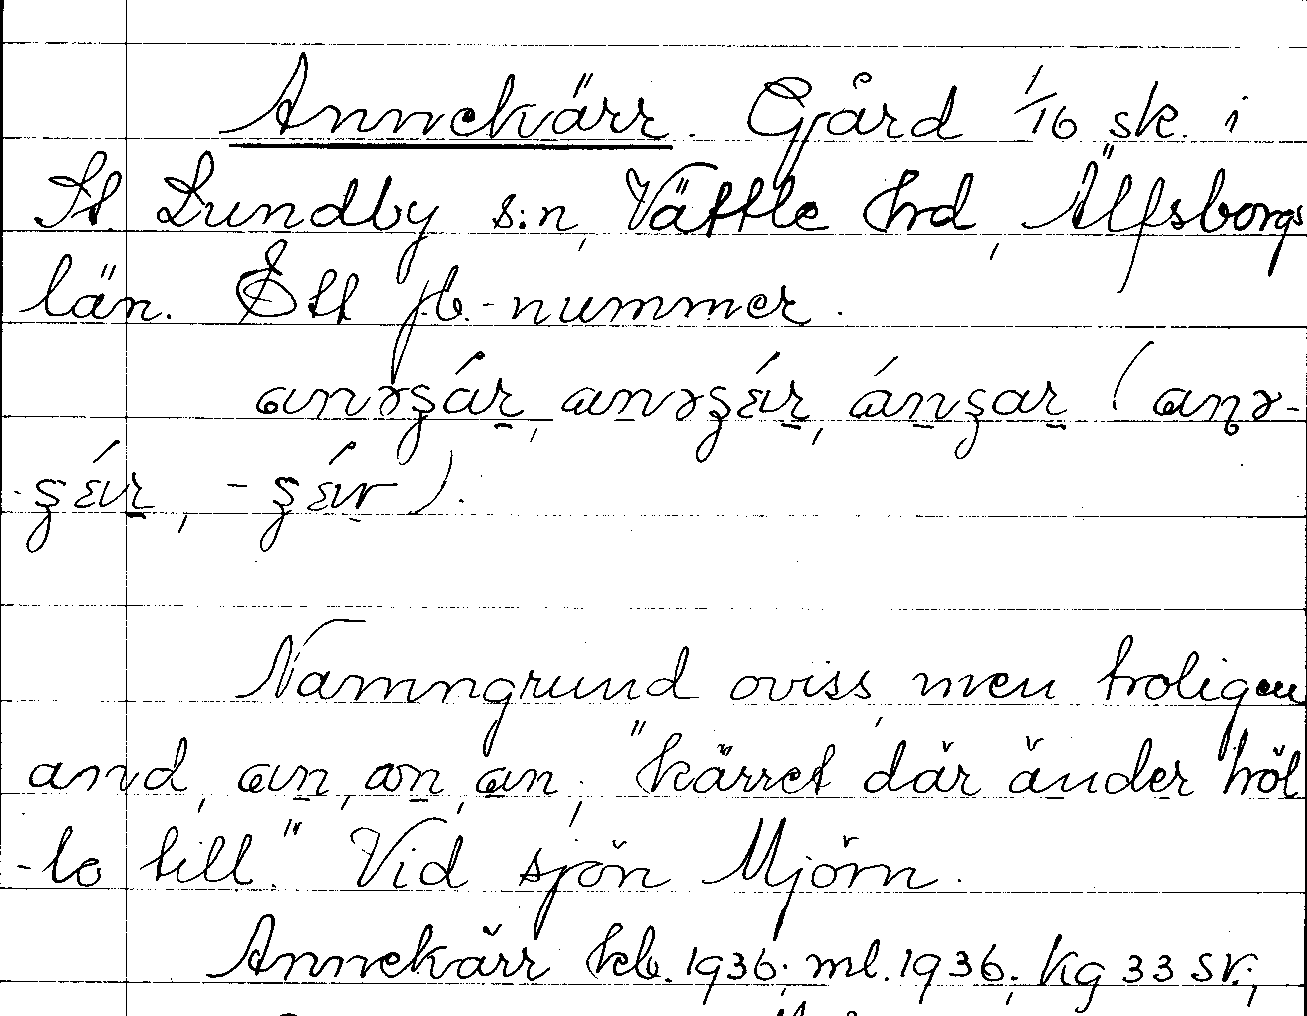 Annekärr. Gård 1/16 sk. i
St. Lundby s:n, Vättle hrd, Älfsborgs
län. Ett jb.-nummer.
Namngrund oviss, men troligen
and, an, an, an; "kärret där änder höl
-lo till." Vid sjön Mjörn.
Annekärr kb. 1936; ml. 1936; kg 33 SV.;